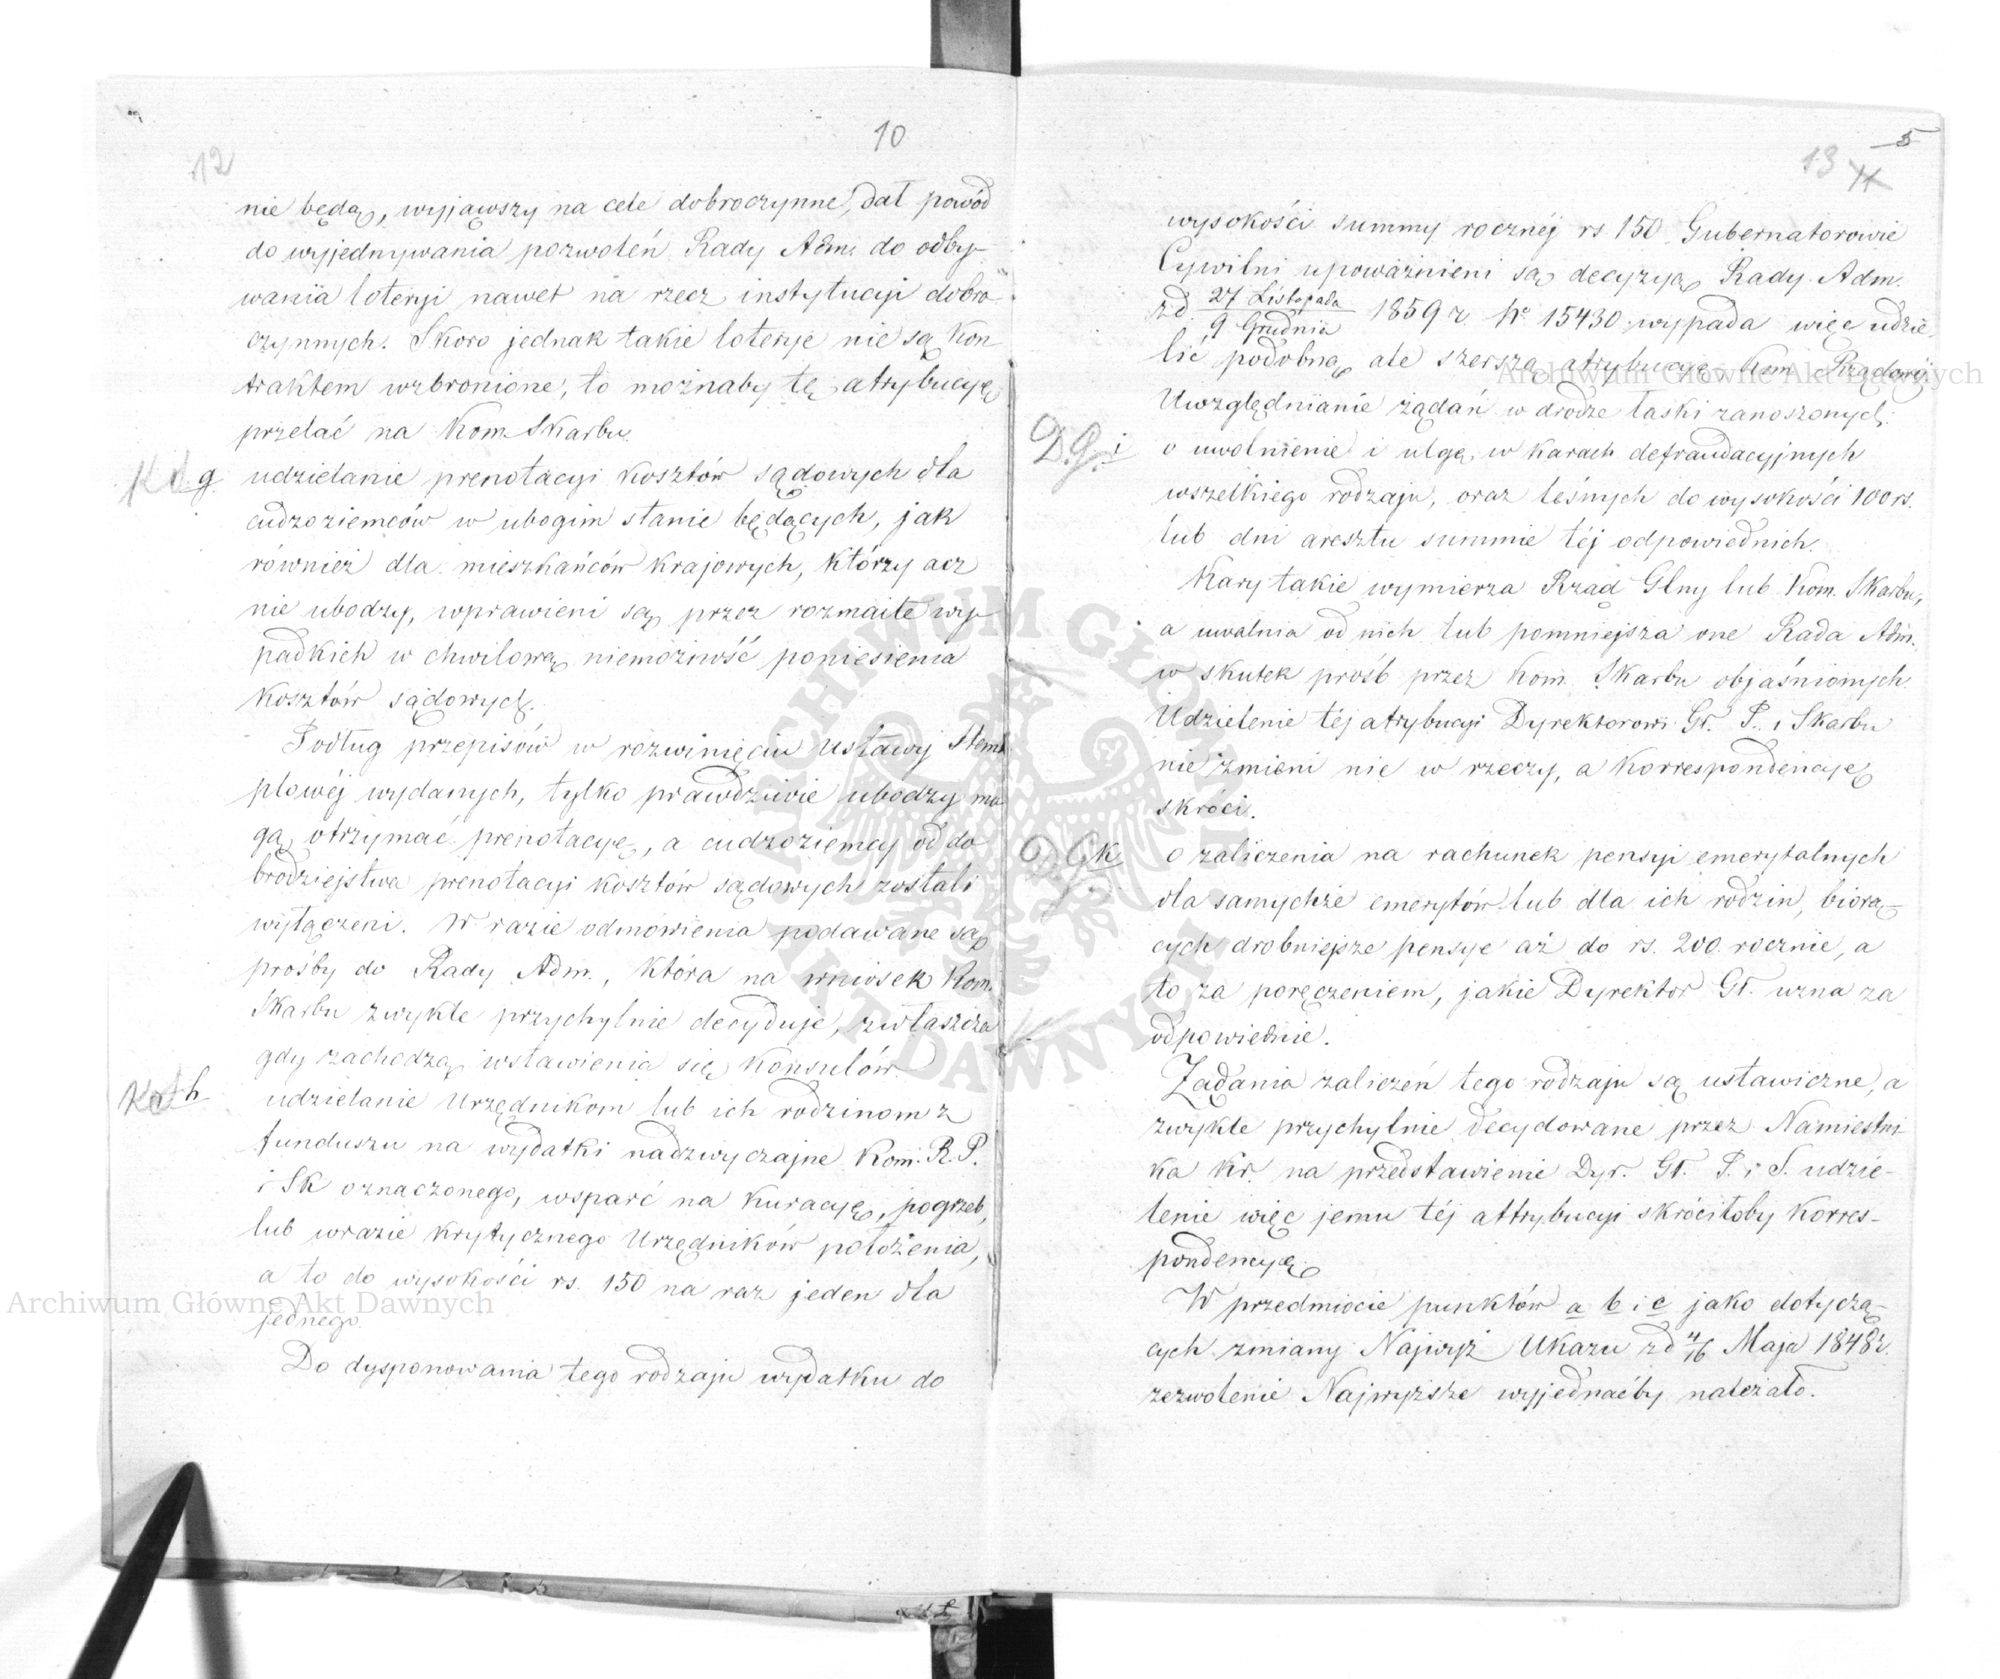 10
12
nie będą, wyjąwszy na cele dobroczynne, dał powód
do wyjednywania pozwoleń Rady Adm. do odby-
wania loteryi nawet na rzecz instytucyi dobro-
czynnych. Skoro jednak takie loterye nie są kon-
traktem wzbronione, to możnaby tę atrybucyę
przelać na Kom. Skarbu.
g. udzielanie prenotacyi kosztów sądowych dla
cudzoziemców w ubogim stanie będących, jak
również dla mieszkańców krajowych, którzy acz
nie ubodzy, wprawieni są przez rozmaite wy-
padkich w chwilową niemożność poniesienia
kosztów sądowych.
Podług przepisów w rozwinięciu Ustawy Stem-
plowéj wydanych, tylko prawdziwie ubodzy mo-
gą otrzymać prenotacyę, a cudzoziemcy od do
brodziejstwa prenotacyi kosztów sądowych zostali
wyłączeni. W razie odmówienia podawane są
prośby do Rady Adm., która na wniosek Kom.
Skarbu zwykle przychylnie decyduje, zwłaszcza
gdy zachodzą wstawienia się Konsulów
h udzielanie Urzędnikom lub ich rodzinom z
funduszu na wydatki nadzwyczajne Kom. R. P.
i Sk oznaczonego, wsparć na kuracyę, pogrzeb,
lub wrazie krytycznego Urzędników położenia,
a to do wysokości rs. 150 na raz jeden dla
jednego.
Do dysponowania tego rodzaju wydatku do
5
13 11
wysokości summy rocznéj rs 150 Gubernatorowie
Cywilni upoważnieni są decyzyą Rady Adm.
zd. 27 Listopada / 9 Grudnia 1859 r. No 15430 wypada więc udzie-
lić podobną ale szerszą atrybucyę Kom Rządowéj
Uwzględnianie żądań w drodze łaski zanoszonych:
D.G. i o uwolnienie i ulgę w karach defraudacyjnych
wszelkiego rodzaju, oraz leśnych do wysokości 100 rs.
lub dni aresztu summie téj odpowiednich.
Kary takie wymierza Rząd Glny lub Kom. Skarbu,
a uwalnia od nich lub pomniejsza one Rada Adm.
w skutek prośb przez Kom. Skarbu objaśnionych.
Udzielenie téj atrybucyi Dyrektorowi Gł. P. i Skarbu
nie zmieni nic w rzeczy, a korrespondencyę
skróci.
D.G. k o zaliczenia na rachunek pensyi emerytalnych
dla samychże emerytów lub dla ich rodzin, biorą-
cych drobniejsze pensye aż do rs. 200 rocznie, a
to za poręczeniem, jakie Dyrektor Gł. uzna za
odpowiednie.
Żądania zaliczeń tego rodzaju są ustawiczne, a
zwykle przychylnie decydowane przez Namiestni-
ka Kr. na przedstawienie Dyr. Gł. P. i S. udzie-
lenie więc jemu téj attrybucyi skróciłoby korres-
pondencyę
W przedmiocie punktów a b i c jako dotyczą-
cych zmiany Najwyż Ukazu zd 4/16 Maja 1848 r.
zezwolenie Najwyższe wyjednaćby należało.
Archiwum Główne Akt Dawnych
Archiwum Główne Akt Dawnych
ARCHIWUM GŁÓWNE AKT DAWNYCH